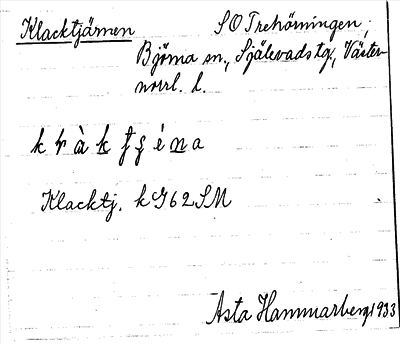 Klacktjärnen SO Trehörningen,
Björna sn., Själevads tg., Väster-
norrl. l.
k r à k t ʃ é n a
Klacktj. kG62SM
Asta Hammarberg 1933